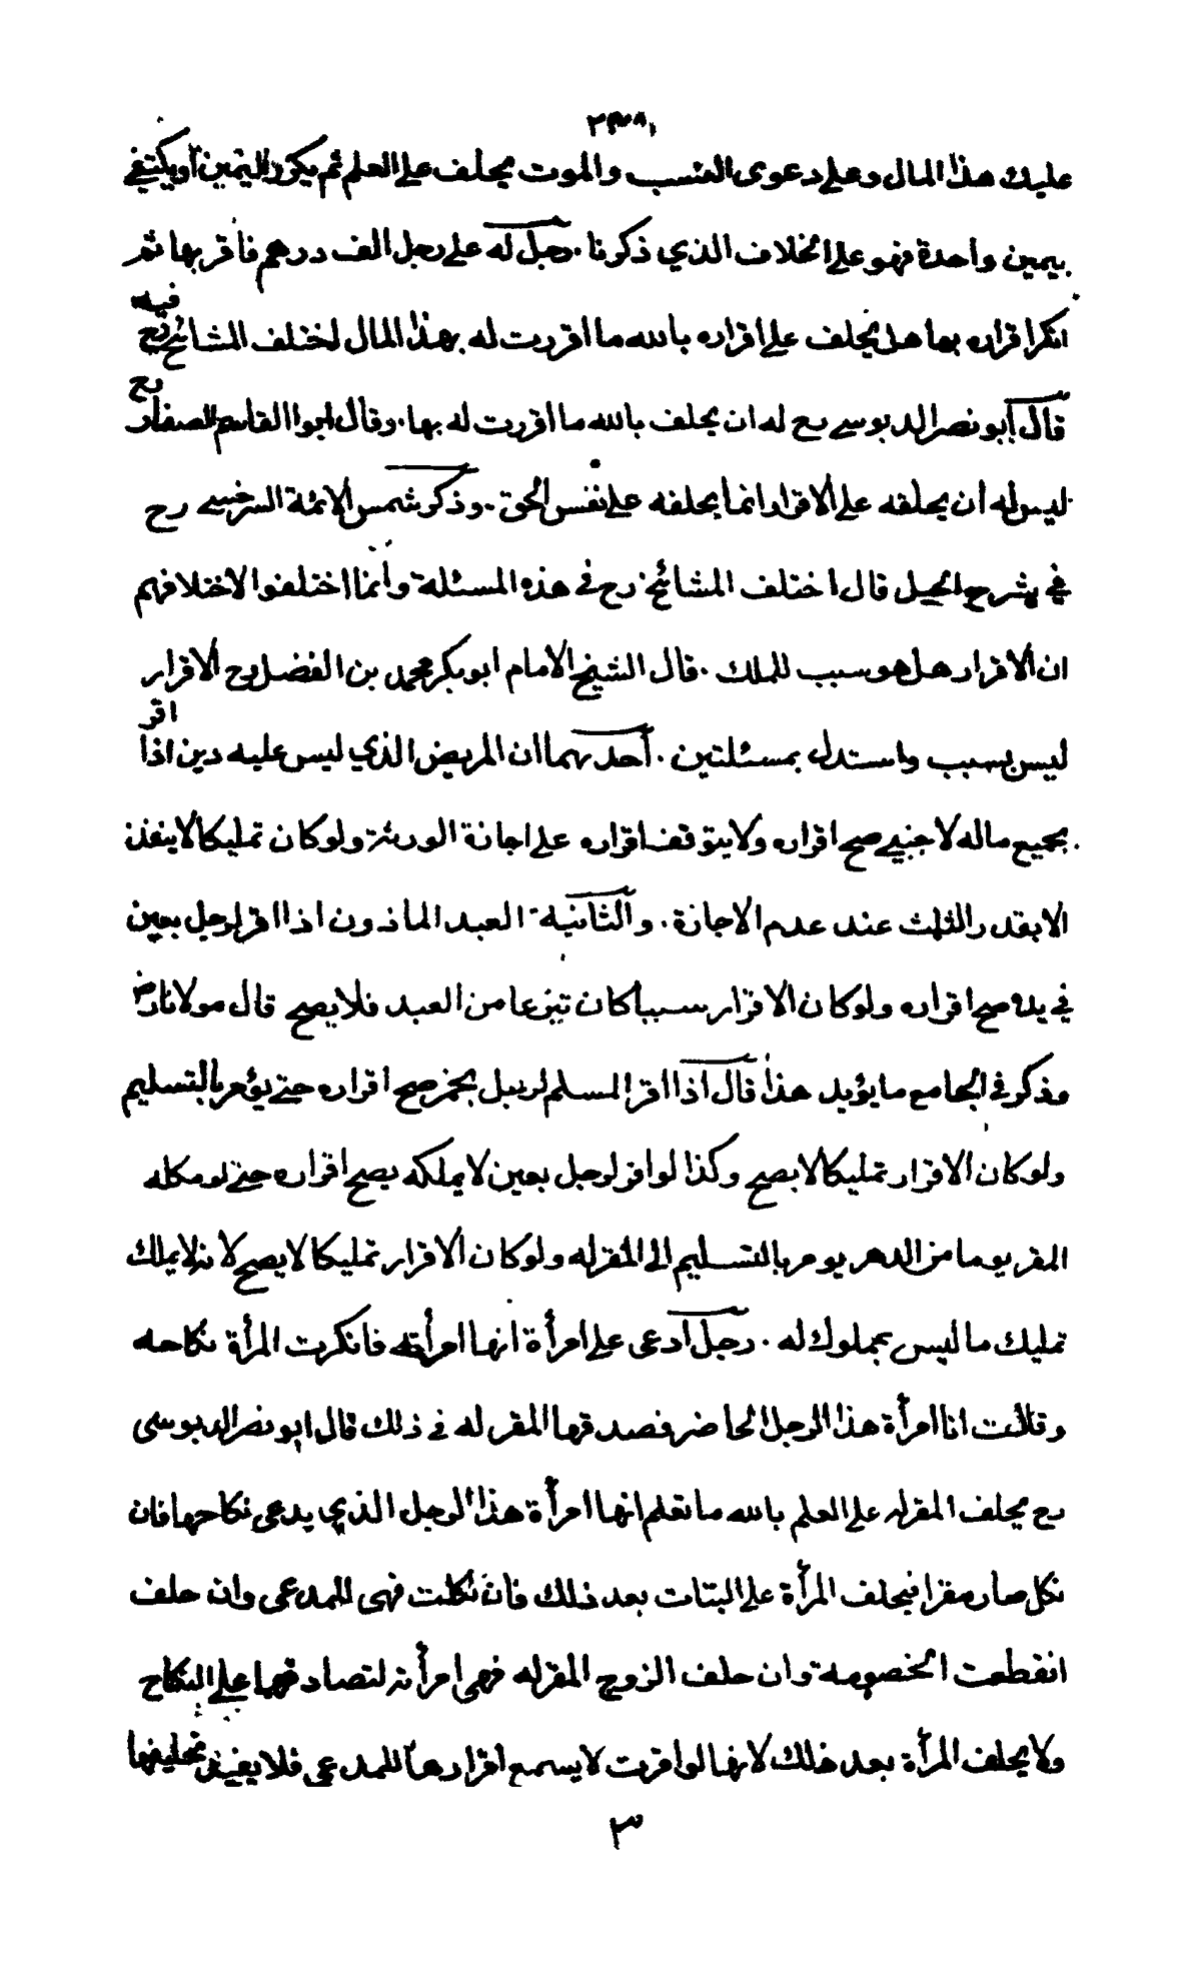 عليك هذا المال وعلى دعوى النسب والموت يحلف على العلم ثم يكرر اليمين أو يكتفي
بيمين واحدة فهو على الخلاف الذي ذكرنا . رجل له على رجل الف درهم فاقر بها ثم
انكر اقراره بها هل يحلف على اقراره بالله ما اقررت له بهذا المال اختلف المشائخ رح فيه
قال أبو نصر الدبوسي رح له ان يحلف بالله ما اقررت له بها . وقال ابوا القاسم الصفار رح
ليس له أن يحلفه على الاقرار انما يحلفه على نفس الحق . وذكر شمس الائمة السرخسي رح
في شرح الحيل قال اختلف المشائخ رح في هذه المسئلة وأنما اختلفوا الاختلافهم
ان الاقرار هل هو سبب للملك . قال الشيخ الامام ابو بكر محمد بن الفضل رح الاقرار
ليس بسبب واستدل بمسئلتين . أحدهما ان المريض الذي ليس عليه دين اذا اقر
بجميع ماله لاجنبي صح اقراره ولا يتوقف اقراره على اجازة الورثة ولو كان تمليكا لا ينفذ
الا بقدر الثلث عند عدم الاجازة . والثانية العبد الماذون اذا اقر لرجل بعين
في يده صح اقراره ولو كان الاقرار سببا كان تبرعا من العبد فلا يصح قال مولانا رض
وذكر في الجامع ما يؤيد هذا قال اذا اقر المسلم لرجل بخمر صح اقراره حتى يؤمر بالتسليم
ولو كان الاقرار تمليكا لا يصح وكذا لو اقر لرجل بعين لا يملكه يصح اقراره حتى لو مكله
المقر يوما من الدهر يومر بالتسليم الى المقر له ولو كان الاقرار تمليكا لا يصح لانه لا يملك
تمليك ما ليس بمملوك له . رجل ادعى على امرأة انها امرأته فانكرت المرأة نكاحه
وقالت انا امرأة هذا الرجل الحاضر فصدقها المقر له في ذلك قال ابو نصر الدبوسى
رح يحلف المقر له على العلم بالله ما تعلم انها امرأة هذا الرجل الذي يدعى نكاحها فان
نكل صار مقرا فيحلف المرأة على البتات بعد ذلك فان نكلت فهى للمدعى وان حلف
انقطعت الخصومة وان حلف الزوج المقر له فهى امرأته لتصادقهما على النكاح
ولا يحلف المرأة بعد ذلك لانها لو اقرت لا يسمع اقرارها للمدعى فلا يفيد تحليفها
٣